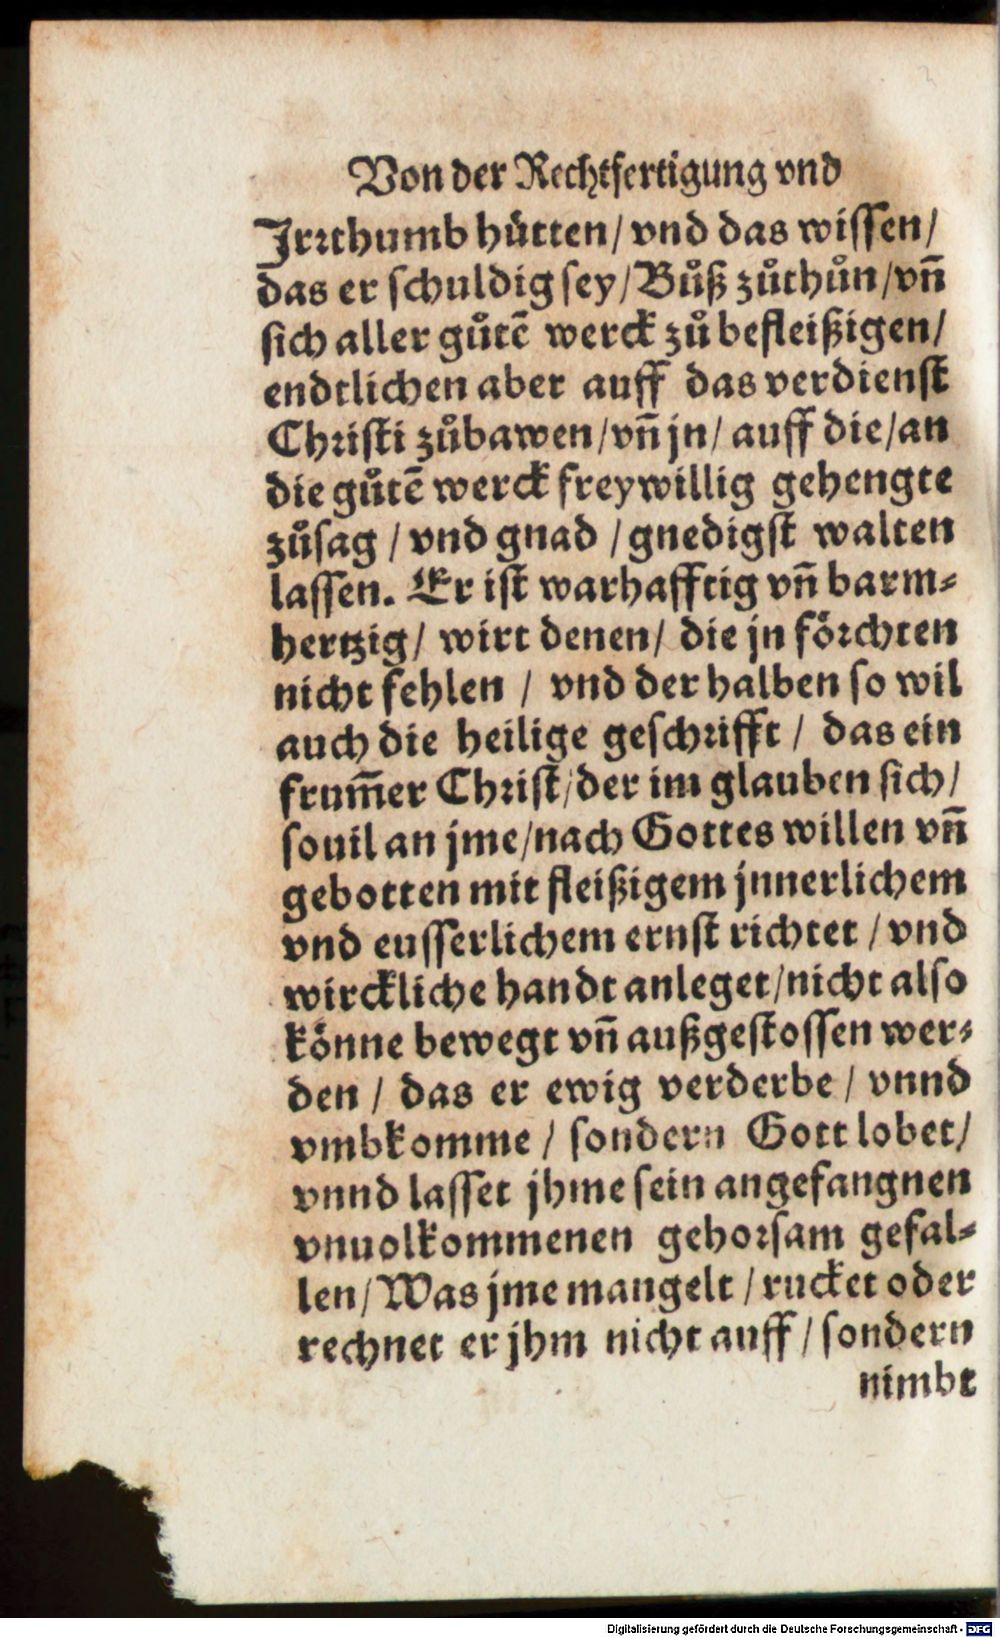 Von der Rechtfertigung vnd
Jrrthumb hütten/ vnd das wissen/
das er schuldig sey/ Bůß zůthůn/ vñ
sich aller gůtẽ werck zů befleißigen/
endtlichen aber auff das verdienst
Christi zůbawen/ vñ jn/ auff die/ an
die gůtẽ werck freywillig gehengte
zůsag / vnd gnad / gnedigst walten
lassen. Er ist warhafftig vñ barm-
hertzig/ wirt denen/ die jn förchten
nicht fehlen / vnd der halben so wil
auch die heilige geschrifft / das ein
frum̃er Christ/ der im glauben sich/
souil an jme/ nach Gottes willen vñ
gebotten mit fleißigem jnnerlichem
vnd eusserlichem ernst richtet / vnd
wirckliche handt anleget/ nicht also
könne bewegt vñ außgestossen wer-
den / das er ewig verderbe / vnnd
vmbkomme / sondern Gott lobet/
vnnd lasset jhme sein angefangnen
vnuolkommenen gehorsam gefal-
len/ Was jme mangelt / rucket oder
rechnet er jhm nicht auff / sondern
nimbt
Digitalisierung gefördert durch die Deutsche Forschungsgemeinschaft - DFG